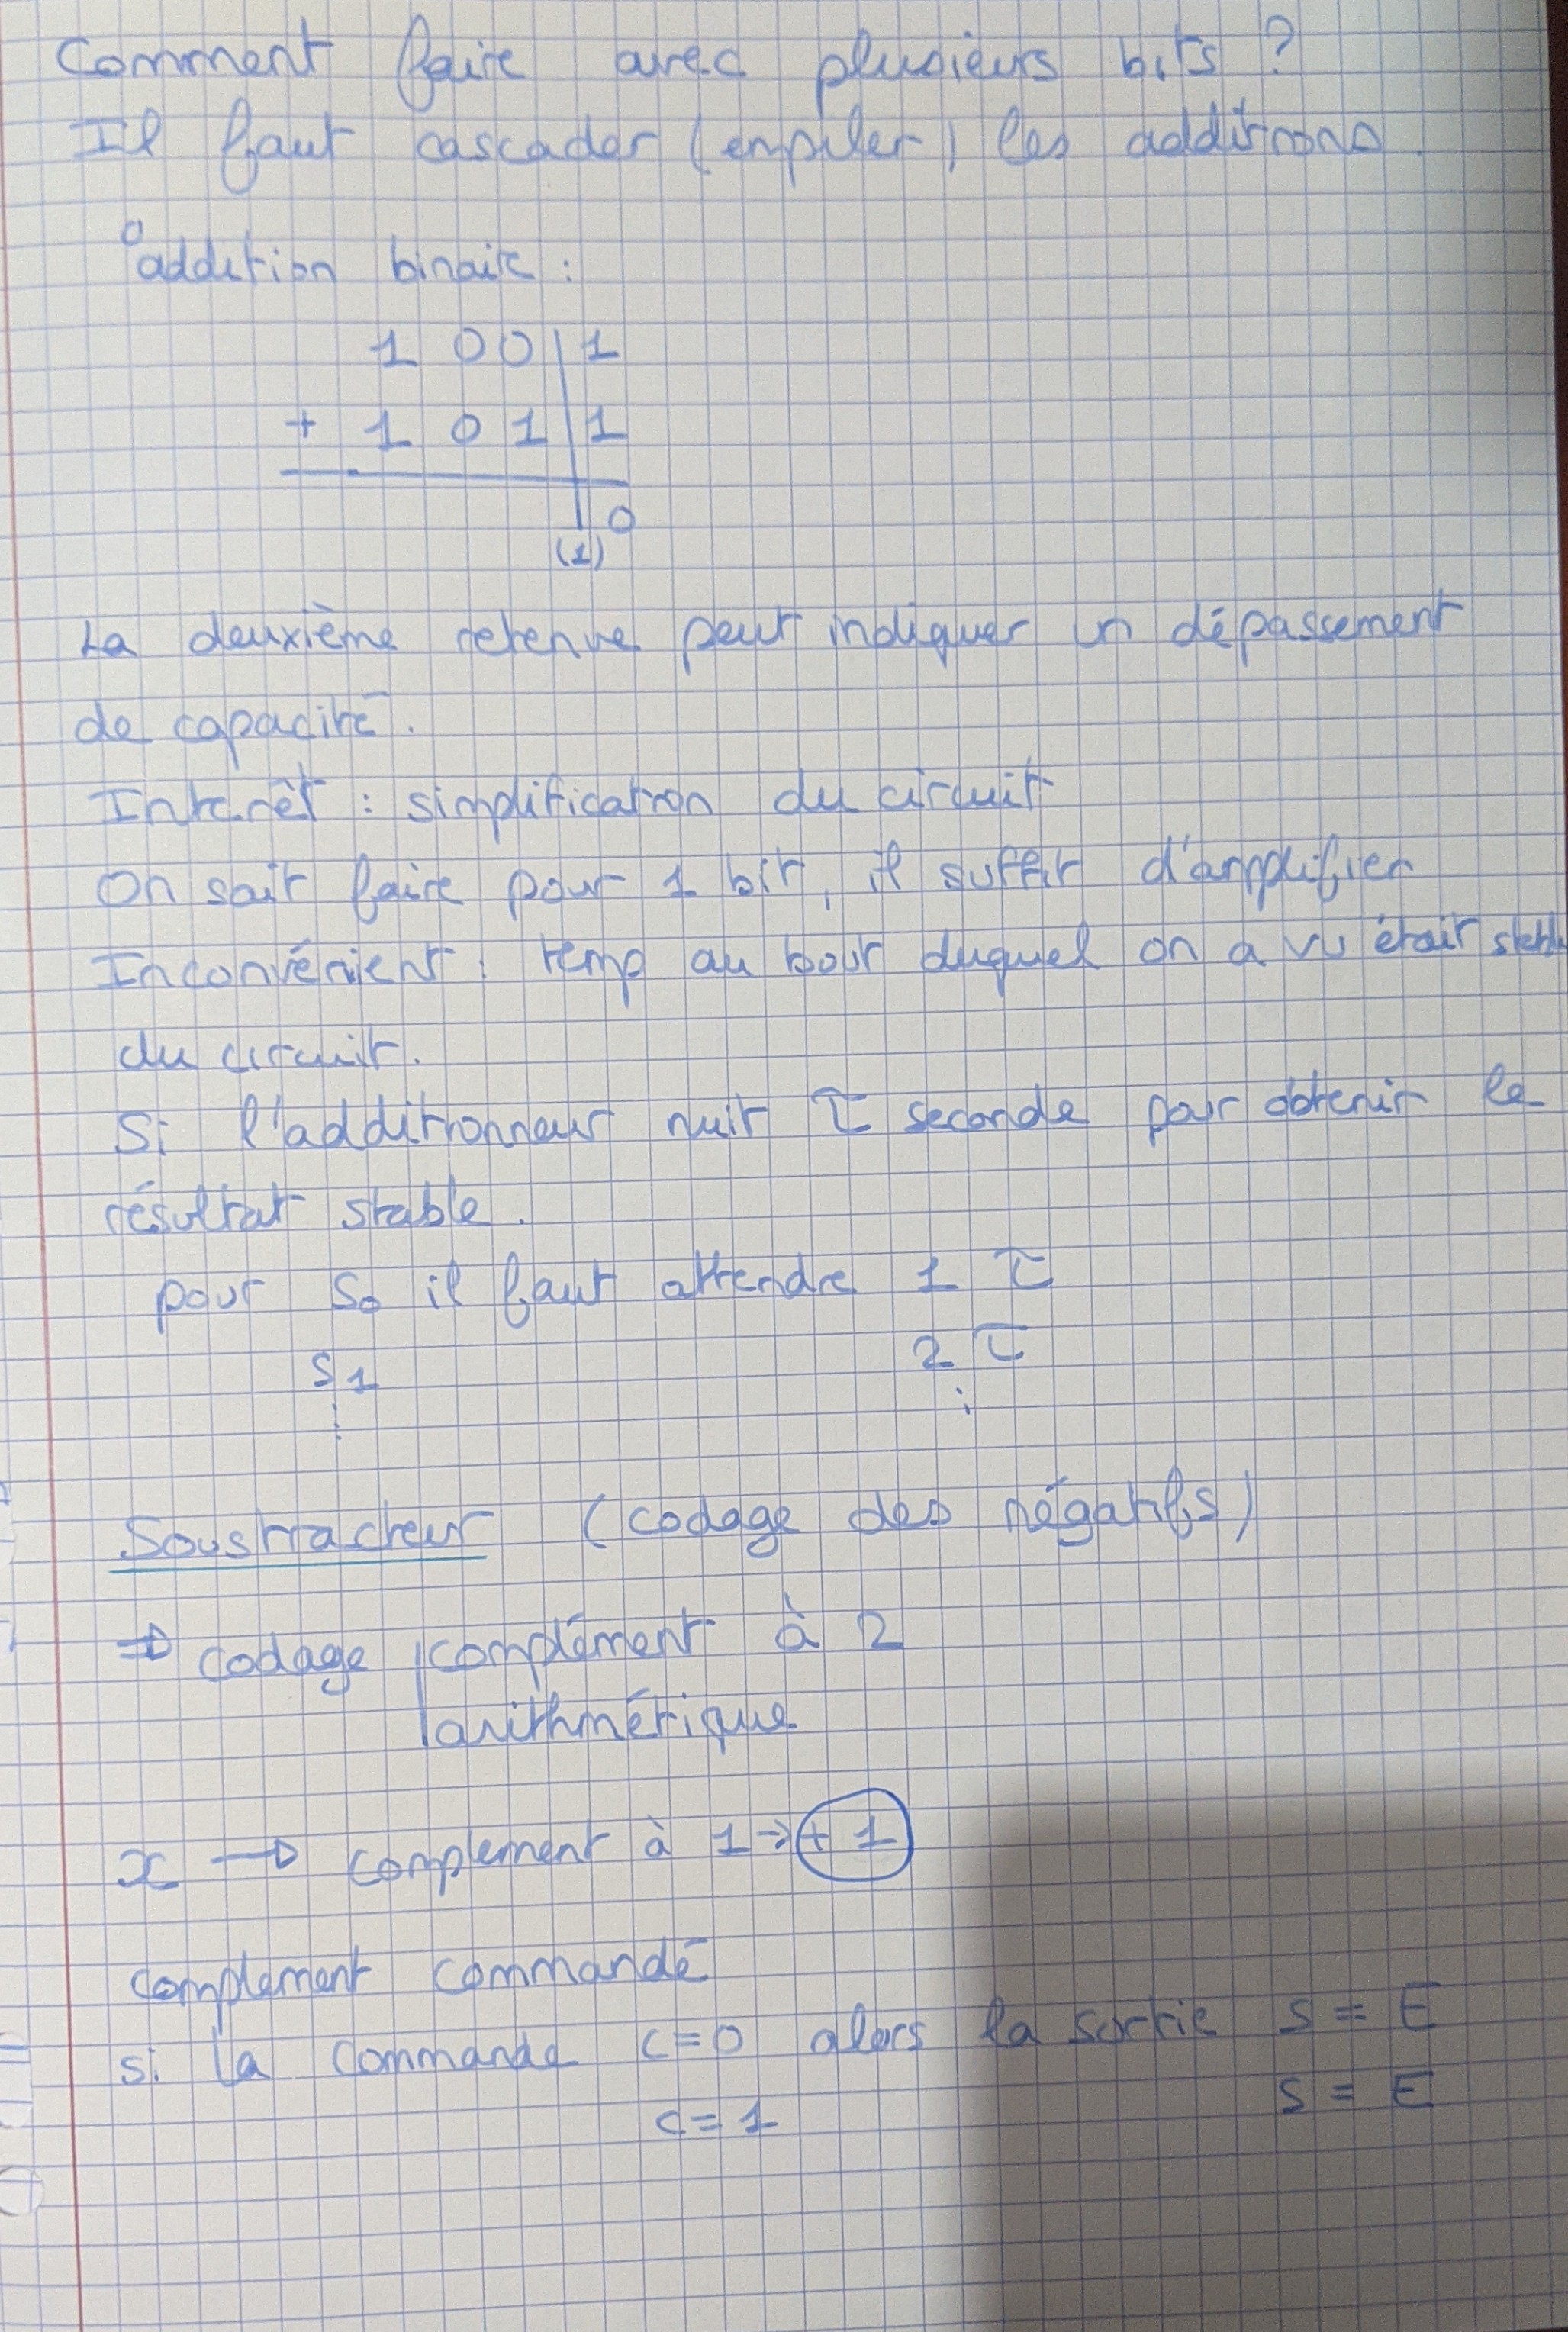 Comment faire avec plusieurs bits ?
Il faut cascader (enpiler) les additions.
addition binaire :
1 0 0 | 1
+ 1 0 1 | 1
0
(1)
La deuxième retenue peut indiquer un dépassement
de capacité.
Interêt : simplification du circuit
On sait faire pour 1 bit, il suffit d'amplifier
Inconvénient : temp au bout duquel on a vu était stable
du circuit.
Si l'additionneur nuit τ seconde pour obtenir le
résultat stable.
pour S0 il faut attendre 1 τ
S1 2 τ
⋮ ⋮
Soustracteur (codage des négatifs)
⇒ codage complément à 2
arithmétique
x → complement à 1 → + 1
complement commandé
si la commande c=0 alors la sortie S = E
c=1 S = E